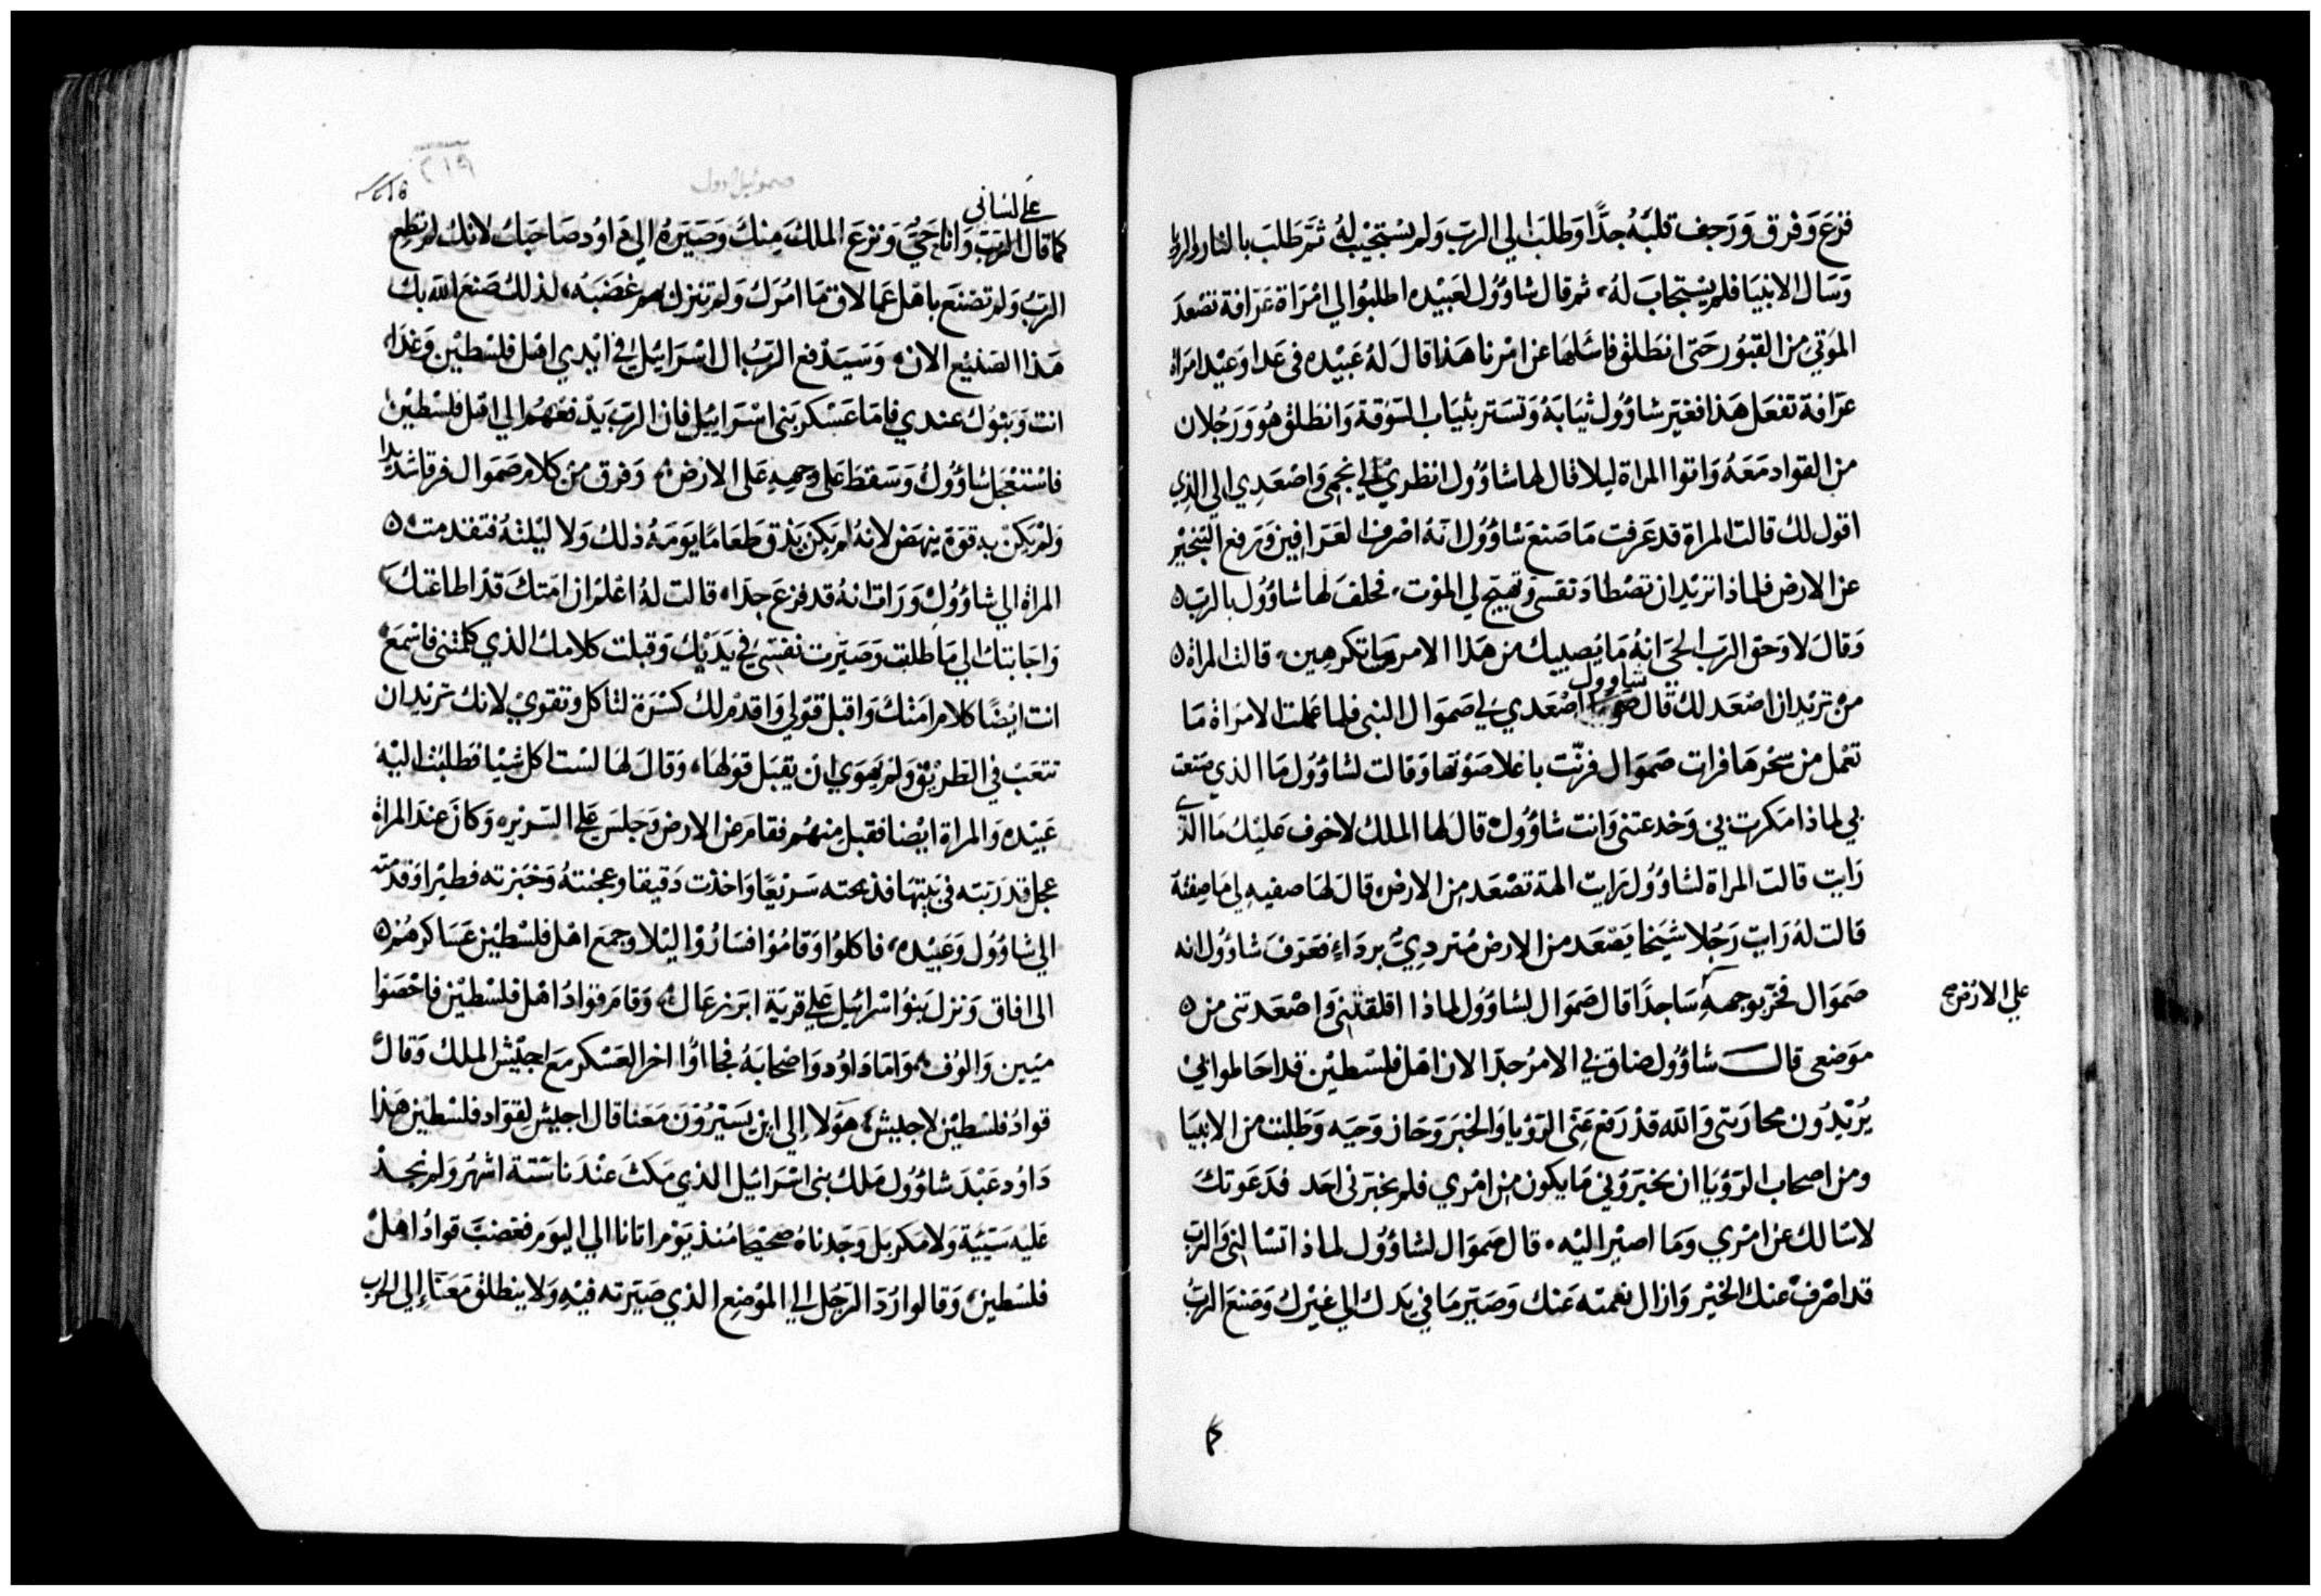 فزع وَفرق وَرَجف قلبَهُ جدًّا وَطلبَ الي الربّ وَلم يسْتجيْب لهُ ثمّ طَلبَ بالنار والربط
وَسَال الانبيَا فلم يسْتجابَ لهُ، ثم قال شاوُول لعَبيْده اطلبُوا لي امْرَاة عَرّافة تصْعدَ
الموَتيَ من القبوُر حَتى انطَلق فاسَلها عن امْرنا هَذا قالَ لهُ عَبيْده في عدا وعيْد امرَاة
عرّافة تفعَل هَذا فغيّر شاوُول ثيابَهُ وَتسَتر بثيَاب السّوقة وَانطَلق هُوَ وَرَجُلان
من القواد مَعَهُ وَاتوا المراة ليلا قال لها شاوُول انظري لي انجمي وَاصْعَدِي الي الذِي
اقول لك قالت المراة قد عَرفت مَا صَنعَ شاوُول انّهُ اصْرف العَرّافين وَرَفع التنجيْر
عن الارض فلماذا تريْدان تصْطاد نفسي وَتهيّج لي الموْت، فحلفَ لها شاوُول بالربّ
وَقالَ لا وَحق الربّ الحَيّ انهُ مَا يُصيبك من هَذا الامر مما تكرهين، قالت المراة
منْ تريْد ان اصْعَد لك قال شاوول اصْعَدي لي صَموَال النبي فلما عَملت الامرَاة مَا
تعْمل من سحْرهَا فرات صَموَال فرنّت باعلا صَوْتها وَقالت لشاوُول مَا الذي صَنعت
بي لماذا مَكرت بي وَخدعتني وَانت شاوُول، قالَ لها الملك لا خوف عَليْك مَا الذي
رَايت قالت المراة لشاوُول رَايت الهة تصْعَد من الارض، قالَ لهَا صفيهِ لي مَا صفتهُ
قالت لهُ رَايت رَجُلا شيْخا يَصْعَد من الارض مُتردِيّ بردَاءِ فعَرَفَ شاوُول انه
صَموَال فخرّ بوجههِ سَاجدًا قال صَموَال لشاوُول لماذا اقلقتني وَاصْعَدتني من
علي الارض صح
مَوَضعي قال شاوُول ضاق بي الامرُ جدّا الان اهْل فلسْطين قد احَاطوا بي
يُريْدُون محارَبتي وَالله قدْ رَفع عَنّي الرّؤيا وَالخبَر وَحَاز وَحيَه وَطَلبت من الانبيَا
ومن اصحاب الرّؤيَا ان يخبَروُني مَا يكون من امْري فلم يخبَرني احَد فدَعَوتك
لاسْالك عن امْري وَمَا اصيْر اليْه، قال صَموَال لشاوُول لماذا تسْالني وَالربّ
قد اصْرفْ عنك الخيْر وَازال نعمته عَنك وَصَيّر مَا في يدك الي غيْرك وَصَنعَ الربّ
صموئيل اول
٢١٩
علي لسَاني
كما قال الربّ وَانا حَيّ وَنزع الملك مِنكَ وَصَيّرهُ الي دَاوُد صَاحبك لانك لم تطِع
الربّ وَلم تصْنعَ باهْل عمالاق مَا امرَك وَلم تنزل بهم غضبَه، لذلك صَنعَ الله بك
هَذا الصّنيْع الان، وَسَيَدْفع الربّ ال اسْرَائيْل في ايْدي اهْل فلسْطيْن وَغدَا
انت وَبَنوُك عندي فامَا عَسْكر بَني اسْرَائيْل فان الربّ يَدفعهُم الي اهْل فلسْطيْن
فاسْتعْجَل شاوُول وَسَقط عَلي وجههِ عَلي الارض، وَفرق منْ كلام صَموَال فرقا شديدا
وَلم يَكنْ به قوّة ينهَض لانهُ لم يكن يَذق طَعَامًا يَومَهُ ذلك وَلا ليْلتهُ فتقدمت
المراة الي شاوُول وَرَات انهُ قد فزعَ جدّا، قالت لهُ اعْلم ان امَتك قدْ اطاعَتك
وَاجَابتك الي مَا طلبت وَصَيّرت نفسي في يَدَيْك وَقبلت كلامك الذي كلمْتني فاسْمَع
انت ايْضًا كلام امَتك وَاقبل قوْلي وَاقدم لك كسْرَة لتاكل وتقوي لانك تريْد ان
تتعَبَ في الطريْق وَلم يَهوَي ان يقبَل قوْلها، وَقالَ لهَا لسْت اكل شيْا فطلبت اليْه
عَبيْده وَالمراة ايْضا فقبل منهُم فقام عَن الارض وَجلسَ عَلي السّريْره وَكانَ عنْدَ المراة
عجل قد رَبّته في بيْتهَا فذبحته سَريْعًا وَاخذت دَقيقا وعجنتهُ وَخبَزته فطيْرا وَقدمّته
الي شاوُول وَعَبيْده، فاكلوُا وَقامُوا فسَارُوْا ليْلا وجمعَ اهْل فلسْطيْن عَسَاكرهُمْ
الي افاق وَنزل بَنوُ اسْرَائيْل عَلي قريَة ابرَزعَال، وَقام قوَادُ اهْل فلسْطيْن فاحْصَوْا
ميَيين وَالوُف، وَامَا دَاوُد وَاصْحابَهُ فجااوُا اخر العَسْكر مَع اجيْش الملك وَقال
قوادُ فلسْطيْن لاجيش، هَوْلاءِ الي ايْن يَسَيْرُوْن مَعنا قال اجيش لقوّاد فلسْطيْن هَذا
دَاوُد عَبْدَ شاوُول مَلك بني اسْرَائيْل الذي مَكثَ عنْدَنا سّتة اشهُر وَلم نجدْ
عَليْه سَيّئة وَلا مَكر بَل وَجّدناهُ صَحيْحًا مُنذ يَوْم اتانا الي اليَوم فغضبَ قوادُ اهْلْ
فلسْطين، وَقالوا رُدّ الرّجُل الي الموْضِع الذي صَيّرته فيْهِ وَلا ينطلق مَعَنا الي الحرب